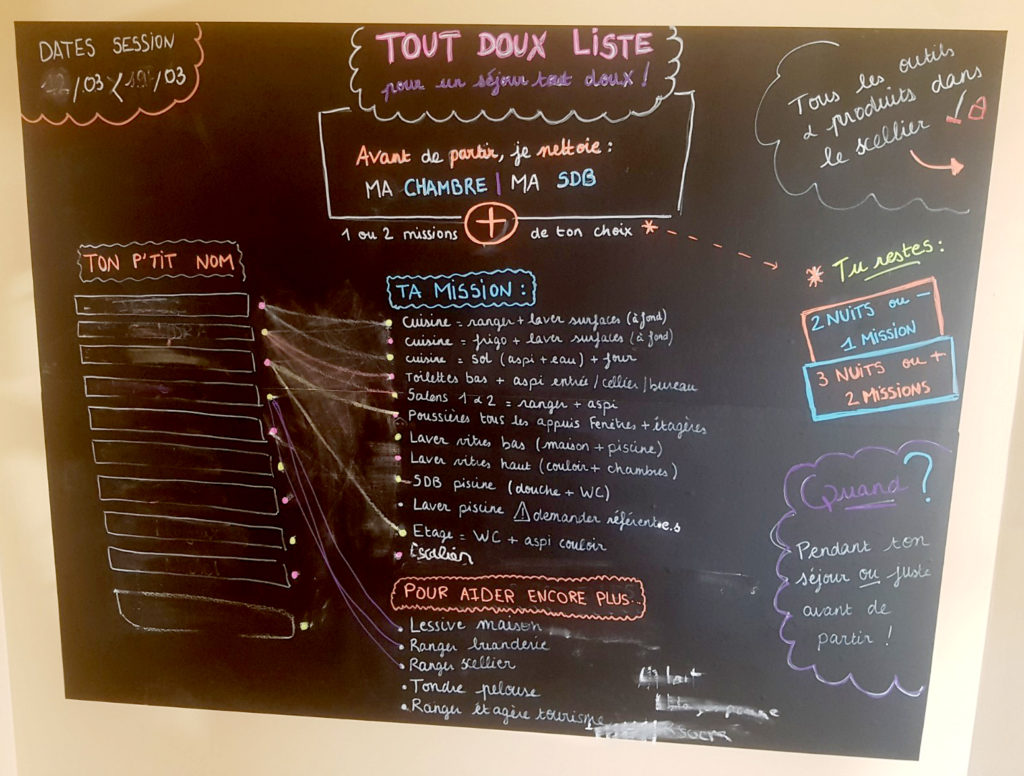 DATES SESSION
/03 < /03
TOUT DOUX LISTE
pour un séjour tout doux !
Avant de partir, je nettoie :
MA CHAMBRE | MA SDB
+
1 ou 2 missions de ton choix *
Tous les outils
& produits dans
le scellier !
* Tu restes :
2 NUITS ou -
1 MISSION
3 NUITS ou +
2 MISSIONS
TON P'TIT NOM
TA MISSION :
cuisine = ranger + laver surfaces (à fond)
cuisine = frigo + laver surfaces (à fond)
cuisine = sol (aspi + eau) + four
Toilettes bas + aspi entrée / cellier / bureau
Salons 1 & 2 = ranger + aspi
Poussières tous les appuis Fenêtres + étagères
Laver vitres bas (maison + piscine)
Laver vitres haut (couloir + chambres)
SDB piscine (douche + WC)
Laver piscine ⚠ demander référent.e.s
Etage = WC + aspi couloir
Escalier
POUR AIDER ENCORE PLUS...
Lessive maison
Ranger buanderie
Ranger scellier
Tondre pelouse
Ranger étagère tourisme
Quand ?
Pendant ton
séjour ou juste
avant de
partir !